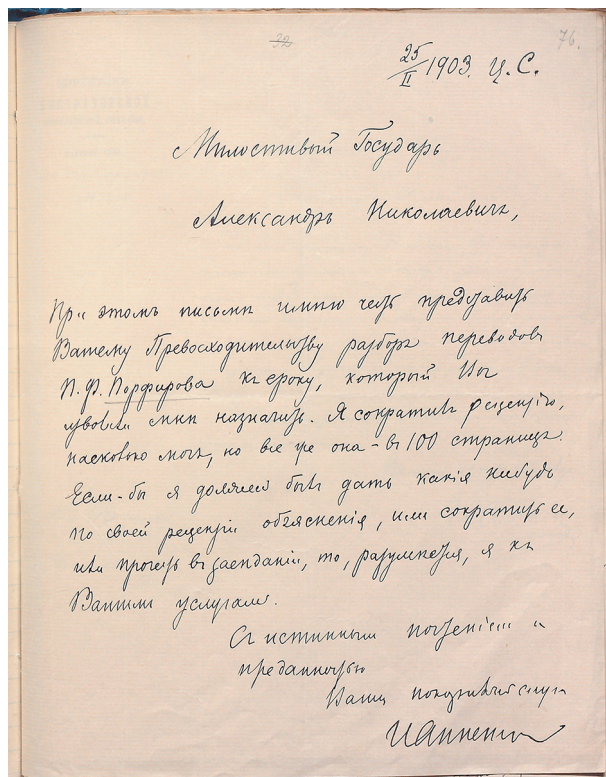 32
76.
25/II 1903. Ц. С.
Милостивый Государь
Александръ Николаевичъ,
При этомъ письмѣ имѣю честь представить
Вашему Превосходительству разборъ переводовъ
П. Ф. Порфирова къ сроку, который Вы
мнѣ назначить. Я сократилъ рецензію,
насколько могъ, но все же она - въ 100 страницъ.
Если-бы я долженъ былъ дать какія нибудь
по своей рецензіи объясненія, или сократить ее,
или прочесть въ засѣданіи, то, разумѣется, я къ
Вашимъ услугамъ.
Съ истиннымъ почтеніемъ и
преданностью
Вашъ покорнѣйшій слуга
И Анненскій